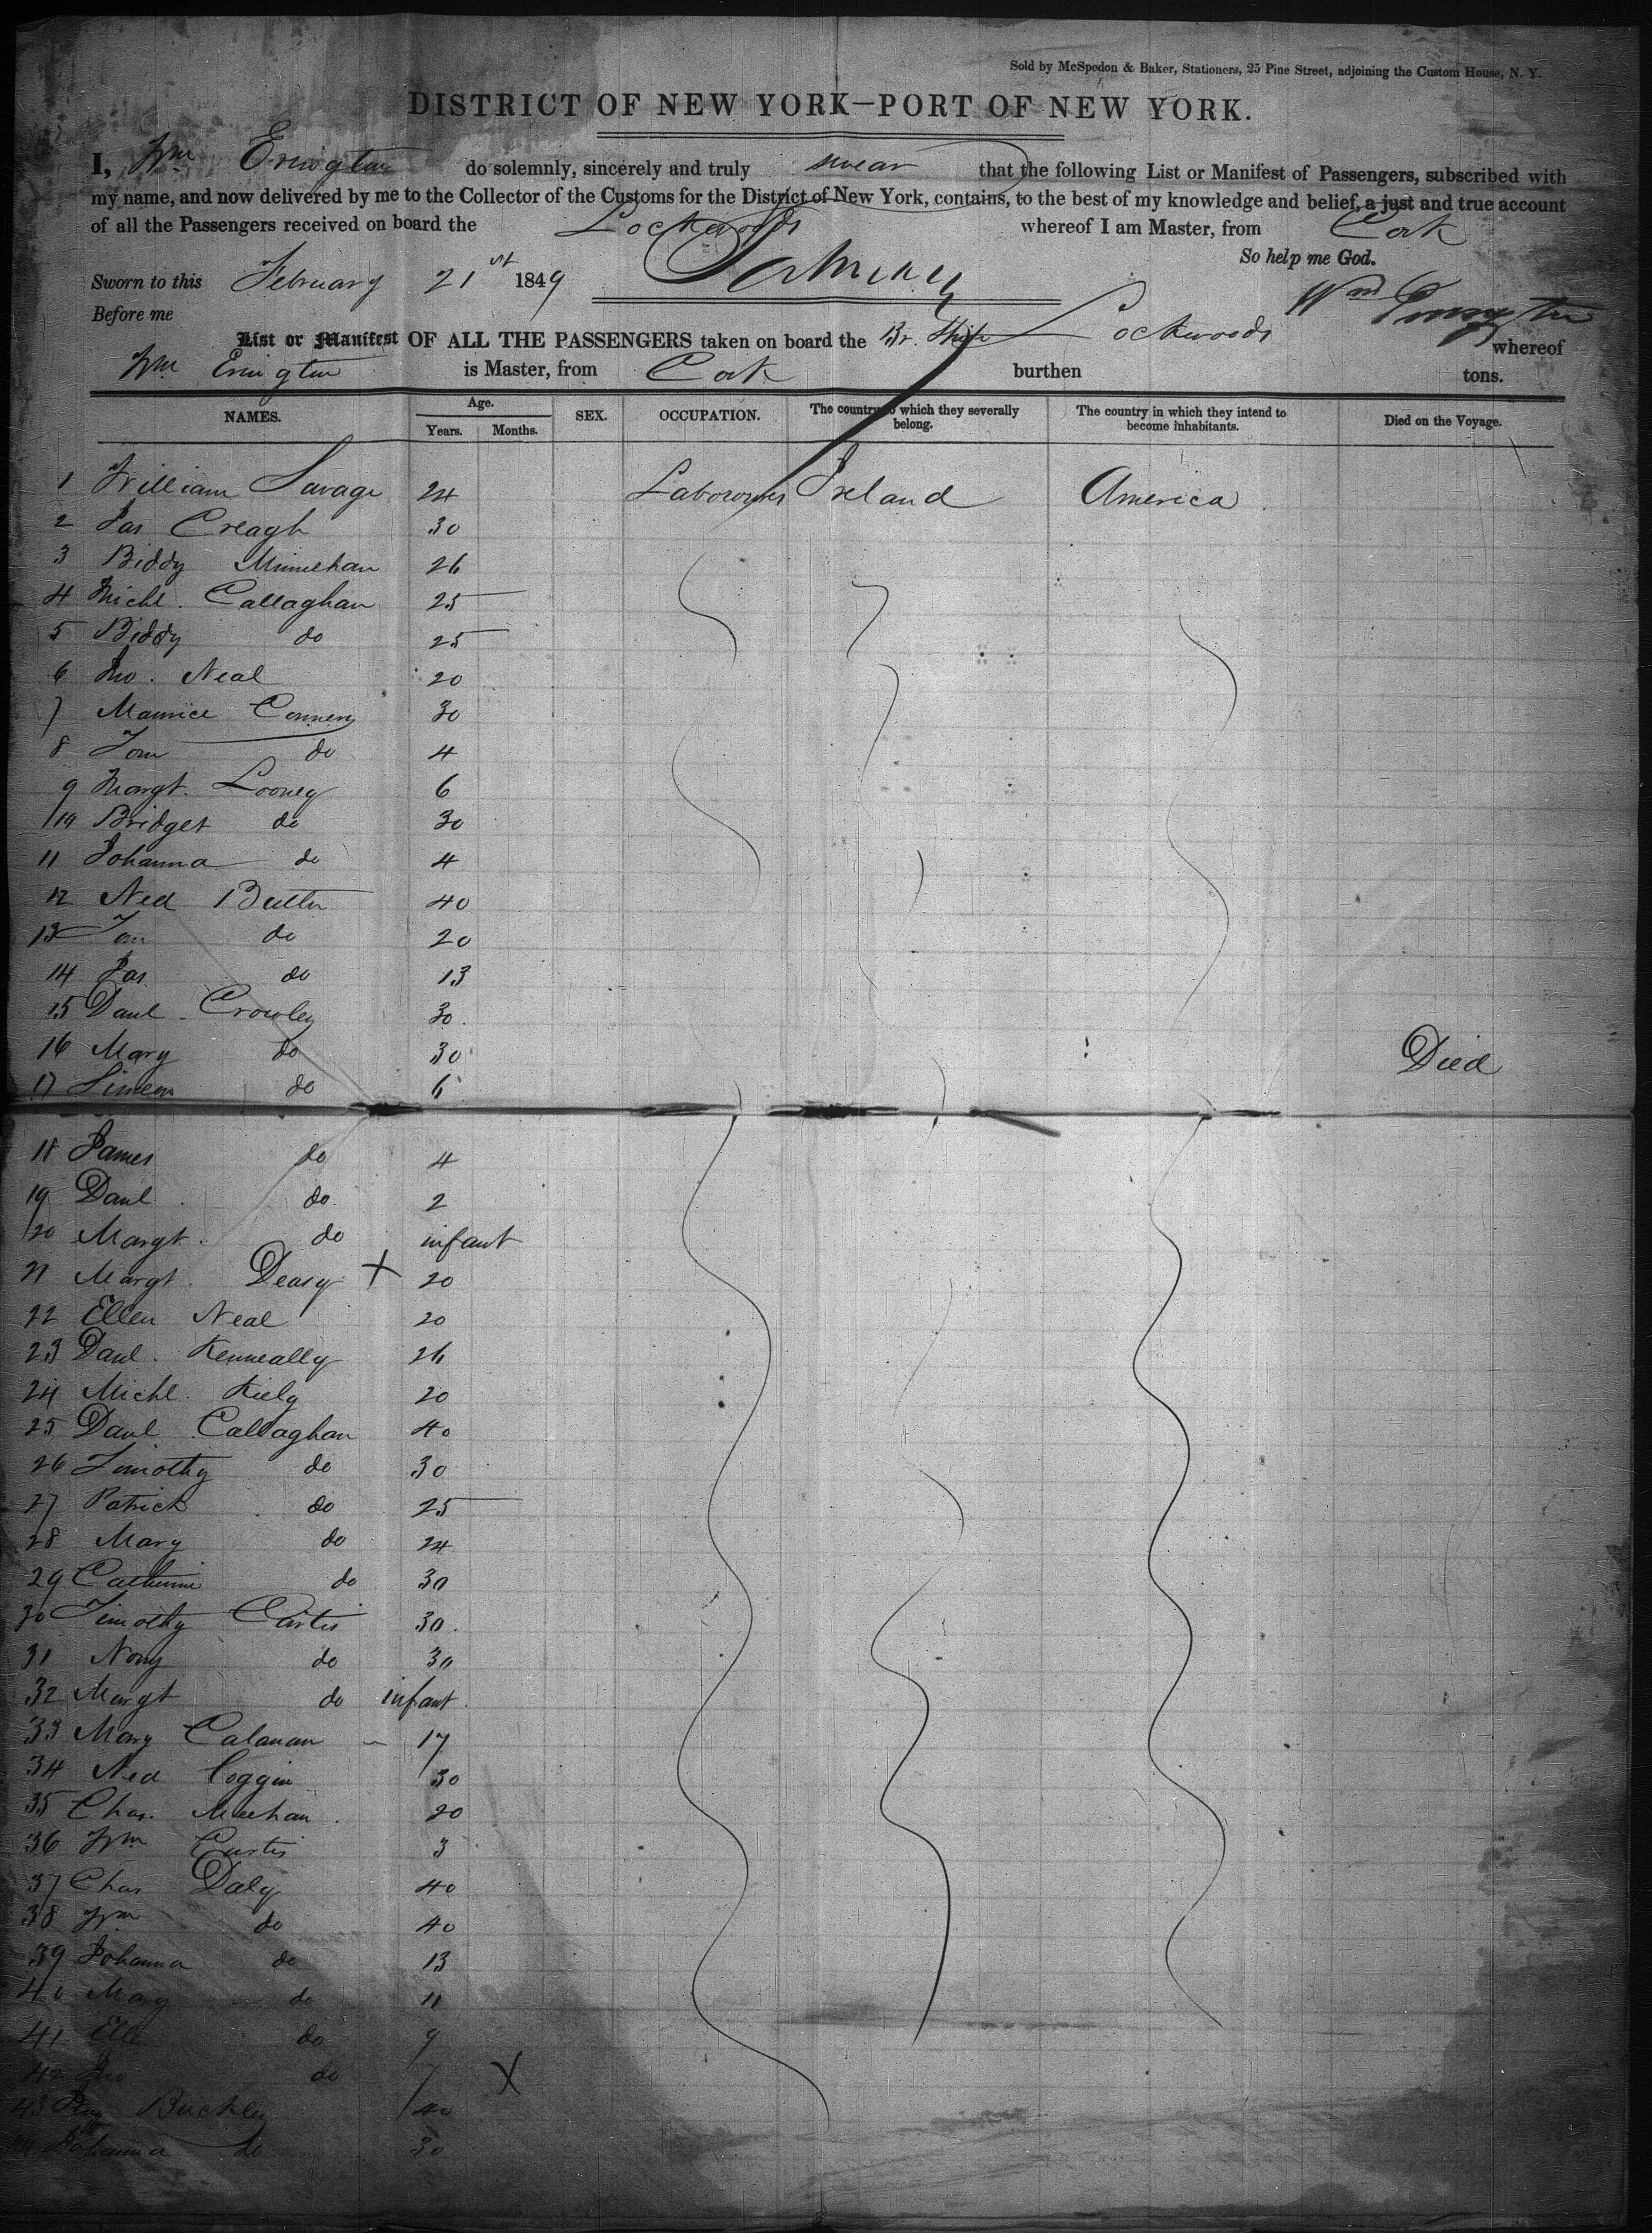 Sold by McSpedon & Baker, Stationers, 25 Pine Street, adjoining the Custom House, N. Y.
DISTRICT OF NEW YORK—PORT OF NEW YORK.
I, Wm Errington do solemnly, sincerely and truly swear that the following List or Manifest of Passengers, subscribed with
my name, and now delivered by me to the Collector of the Customs for the District of New York, contains, to the best of my knowledge and belief, a just and true account
of all the Passengers received on board the Lockwoods whereof I am Master, from Cork
So help me God.
Sworn to this February 21st 1849
Before me Wm Errington
List or Manifest OF ALL THE PASSENGERS taken on board the Br. Ship Lockwoods whereof
Wm Errington is Master, from Cork burthen tons.
NAMES. Age. Years. Months. SEX. OCCUPATION. The country to which they severally belong. The country in which they intend to become inhabitants. Died on the Voyage.
1 William Savage 24 Labourers Ireland America
2 Jas Creagh 30
3 Biddy Minnehan 26
4 Michl. Callaghan 25
5 Biddy do 25
6 Jno. Neal 20
7 Maurice Connery 30
8 Tom do 4
9 Margt. Looney 6
10 Bridget do 30
11 Johanna do 4
12 Ned Butler 40
13 Tom do 20
14 Jas do 13
15 Danl. Crowley 30
16 Mary do 30 Died
17 Simeon do 6
18 James do 4
19 Danl do 2
20 Margt. do infant
21 Margt. Deasy + 20
22 Ellen Neal 20
23 Danl. Kenneally 26
24 Michl. Kiely 20
25 Danl Callaghan 40
26 Timothy do 30
27 Patrick do 25
28 Mary do 24
29 Catherine do 30
30 Timothy Curtis 30
31 Nony do 30
32 Margt do infant
33 Mary Calanan 17
34 Ned Coggin 30
35 Chas. Meehan 20
36 Wm Curtis 3
37 Chas Daly 40
38 Wm do 40
39 Johanna do 13
40 Mary do 11
41 Ellen do 9
42 Jno do 7 X
43 Buckley 40
44 Johanna do 30